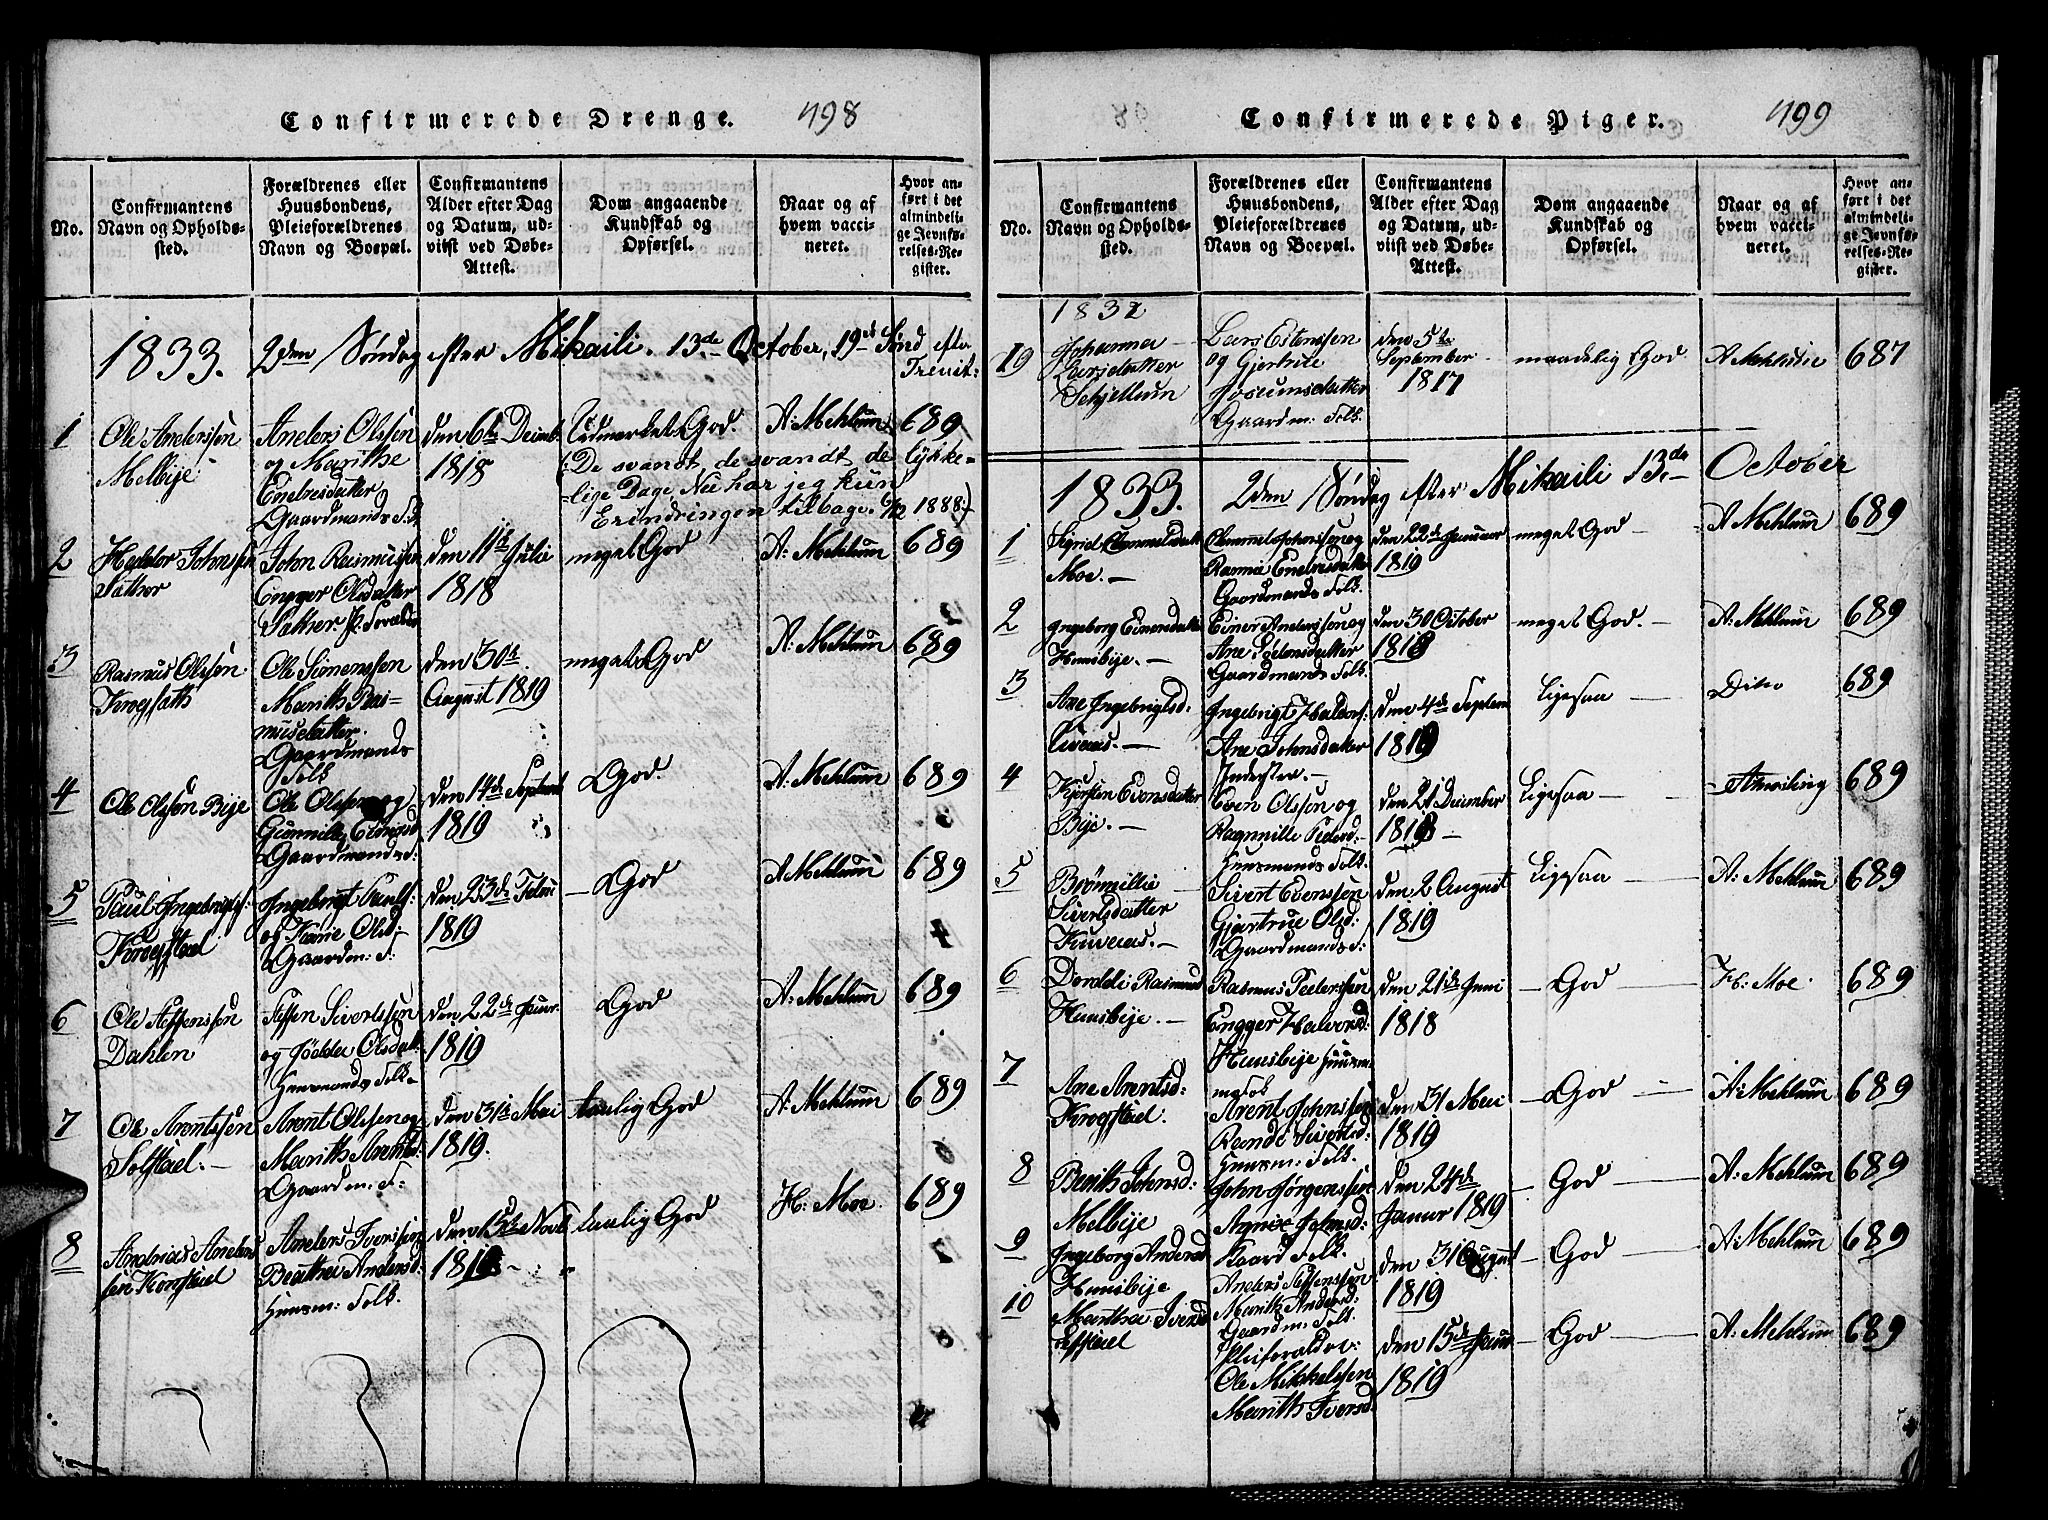 Confirmerede Drenge.
498
No.
Confirmantens
Navn og Opholds-
sted.
Forældrenes eller
Huusbondens,
Pleieforældrenes
Navn og Boepæl.
Confirmantens
Alder efter Dag
og Datum, ud-
viist ved Døbe-
Attest.
Dom angaaende
Kundskab og
Opførsel.
Naar og af
hvem vacci-
neret.
Hvor an-
ført i det
almindeli-
ge Jevnfø-
relses-Re-
gister.
1833. 2den Søndag efter Mikaili. 13de October, 19de Sønd efter
Trenit:
1
Ole Anderssøn
Melbije
Anders Olssøn
og Marithe
Endresdatter
Gaardmands F.
den 6te Decmb.
1818
Udmerket God.
(: De svandt, de svandt de lykke=
=lige Dage, Nu har jeg kun
Erindringen tilbage. 6/12 1888:)
A: Mehlum
689
2
John Rasmussen
Engger Olsdatter
den 11te Julii
1818
meget God
A: Mehlum
689
3
Rasmus Olssøn
Ole Simenssøn
Marith Ras-
musdatter
Gaardmands
Folk
den 30te
August 1819
meget God
A: Mehlum
689
4
Ole Olssøn Bije
Ole Olssøn og
Gaardmands:
den 14de Septemb
1819
God.
A: Mehlum
689
5
Paul Ingebrigts:
Krogstad
Ingebrigt Pauls:
og Karie Olsd:
Gaardm: F:
den 23de
1819
God
A: Mehlum
689
6
Ole Steffenssøn
Dahlen
Steffen Sivertssøn
Huusmands Folk
den 22de Januar
1819
God
A: Mehlum
689
7
Ole Arentssøn
Solstad.
Arent Olssøn og
Marith Arentsd:
Gaardm: F:
den 31te Mai
1819.
taalig God
A: Mehlum
689
8
Andrias Anders
sen Krogstad
Anders Iverssøn
Beathea Andersd.
Huusm: Folk.
den 15de Novb
taalig God
H: Moe.
689
Confirmerede Piger.
499
No.
Confirmantens
Navn og Opholds-
sted.
Forældrenes eller
Huusbondens,
Pleieforældrenes
Navn og Boepæl.
Confirmantens
Alder efter Dag
og Datum, ud-
viist ved Døbe-
Attest.
Dom angaaende
Kundskab og
Opførsel.
Naar og af
hvem vacci-
neret.
Hvor an-
ført i det
almindeli-
ge Jevnfø-
relses-Re-
gister.
1832
19
Johanna
Larsdatter
Schjellum
Lars Estenssen
og Gjertrue
Gaardm: Folk.
den 5te
September
1817
maadelig God
687
1833. 2den Søndag efter Mikaili 13de October
1
Sigrid Clemmetsdatt
Moe.
Rannie Endresdatter
Gaardmands Folk.
den 22de Januar
1819
meget God
A Mehlum
689
2
Ingeborg Einersdatter
Huusbije.
Einer Anderssøn og
Gaardmands Folk.
den 30 October
1818
meget God.
A: Mehlum
689
3
Ane Ingebrigtsd.
Ingebrigt Haldors:
Ane Johnsdatter
Inderster.
den 4de Septem
ligesaa
Dito
689
4
Kjersten Evensdatter
Bije.
Even Olssøn og
Ragnnille Peders:
Huusmands Folk.
den 21 December
1818
Ligesaa
689
5
Brønnillie
Sivertsdatter
Sivert Evenssøn
Gjertrue Olsd:
Gaardmands F:
den 2 August
1819
Ligesaa
A: Mehlum
689
6
Dorddi Rasmusd
Huusbije.
Rasmus Pederssen
Engger Halvorsd:
Huusbije Huusm
den 21de Juni
1818
God
H: Moe.
689
7
Ane Arentsd:
Krogstad.
Arent Johnssen
Randi Sivertsd:
Huusm: Folk.
den 31 Mai
1819
God
A: Mehlum
689
8
Berith Johnsd:
Melbije
John Jørgenssen
Gaard Folk.
den 24de
Januar 1819
God
A: Mehlum
689
9
Ingeborg Andersd
Huusbije
Anders Steffenssen
Marith Andersd:
Gaardm: Folk.
den 31 August
1819
God
A: Mehlum
689
10
Marthea Iversd
Pleiforældre:
Ole Mikkelssen
Marith Iversd.
den 15de Januar
1819
God
A: Mehlum
689